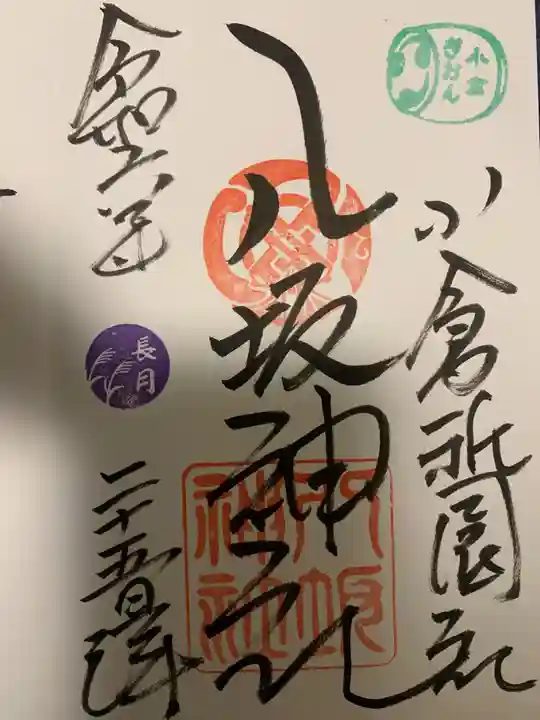 小倉
ぎおん
小倉祇園社
八坂神社
八坂
神社
令和六年
長月
二十五日拝